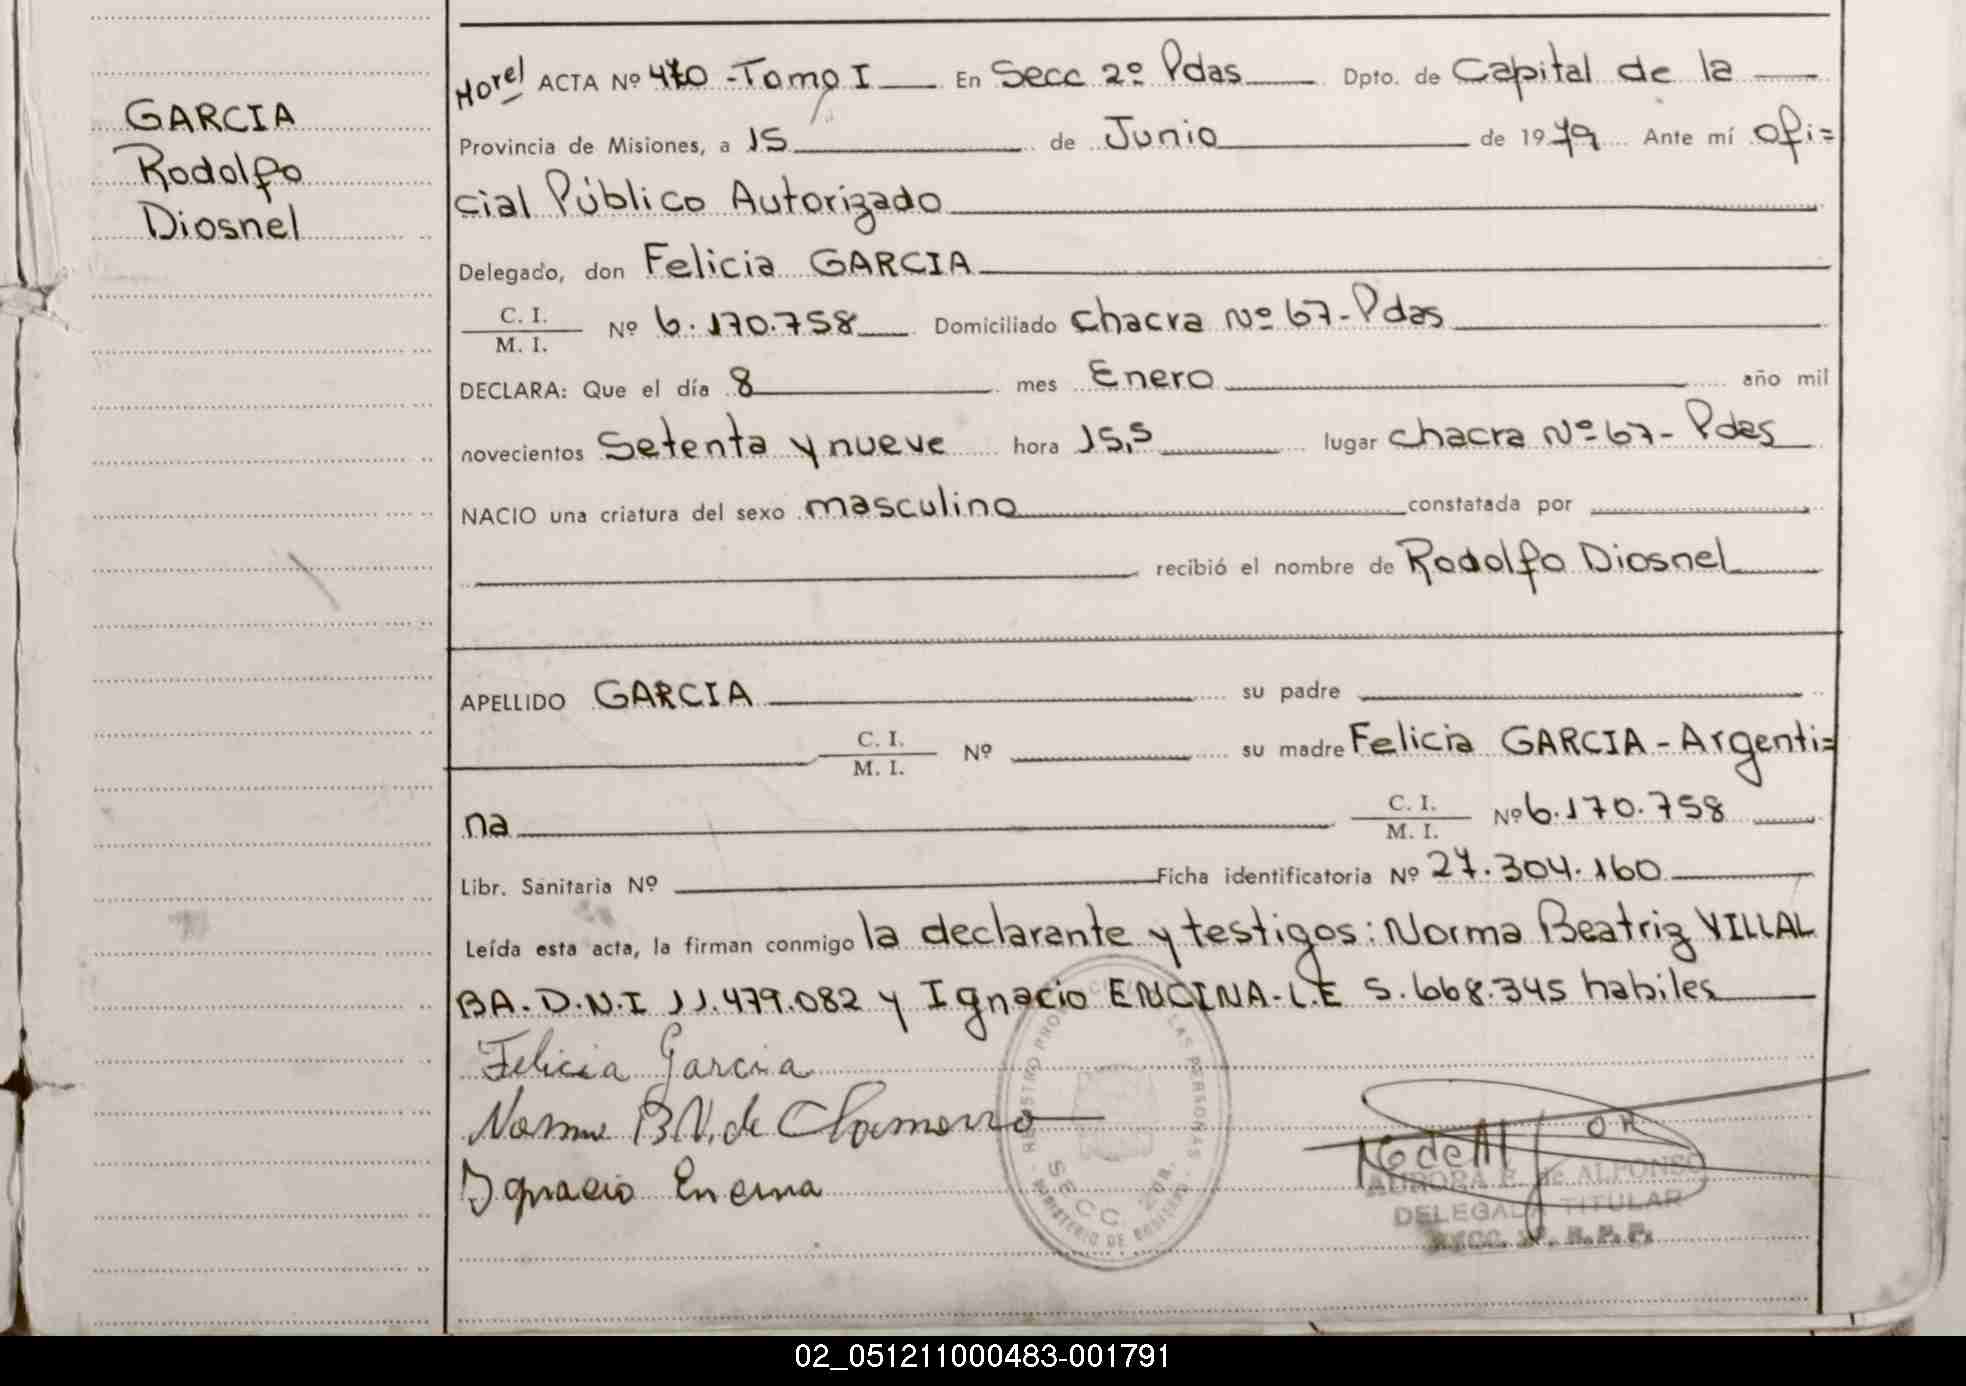 GARCIA
Rodolfo
Diosnel
ACTA Nº 470 - Tomo I En Secc 2º Pdas Dpto. de Capital de la
Provincia de Misiones, a 15 de Junio de 1979 Ante mí ofi=
cial Público Autorizado
Delegado, don Felicia GARCIA
C. I.
M. I. Nº 6.170.758 Domiciliado chacra Nº 67 - Pdas
DECLARA: Que el día 8 mes Enero año mil
novecientos Setenta y nueve hora 15,5 lugar chacra Nº 67 - Pdas
NACIO una criatura del sexo masculino constatada por
recibió el nombre de Rodolfo Diosnel
APELLIDO GARCIA su padre
C. I.
M. I. Nº su madre Felicia GARCIA - Argenti=
na C. I.
M. I. Nº 6.170.758
Libr. Sanitaria Nº Ficha identificatoria Nº 27.304.160
Leída esta acta, la firman conmigo la declarante y testigos: Norma Beatriz VILLAL
BA. D.N.I 11.479.082 y Ignacio ENCINA - L.E 5.668.345 habiles
Felicia Garcia
Norma B.V. de Chamorro
Ignacio Encina
AURORA E. de ALFONSO
DELEGADA TITULAR
SECC.
02_051211000483-001791